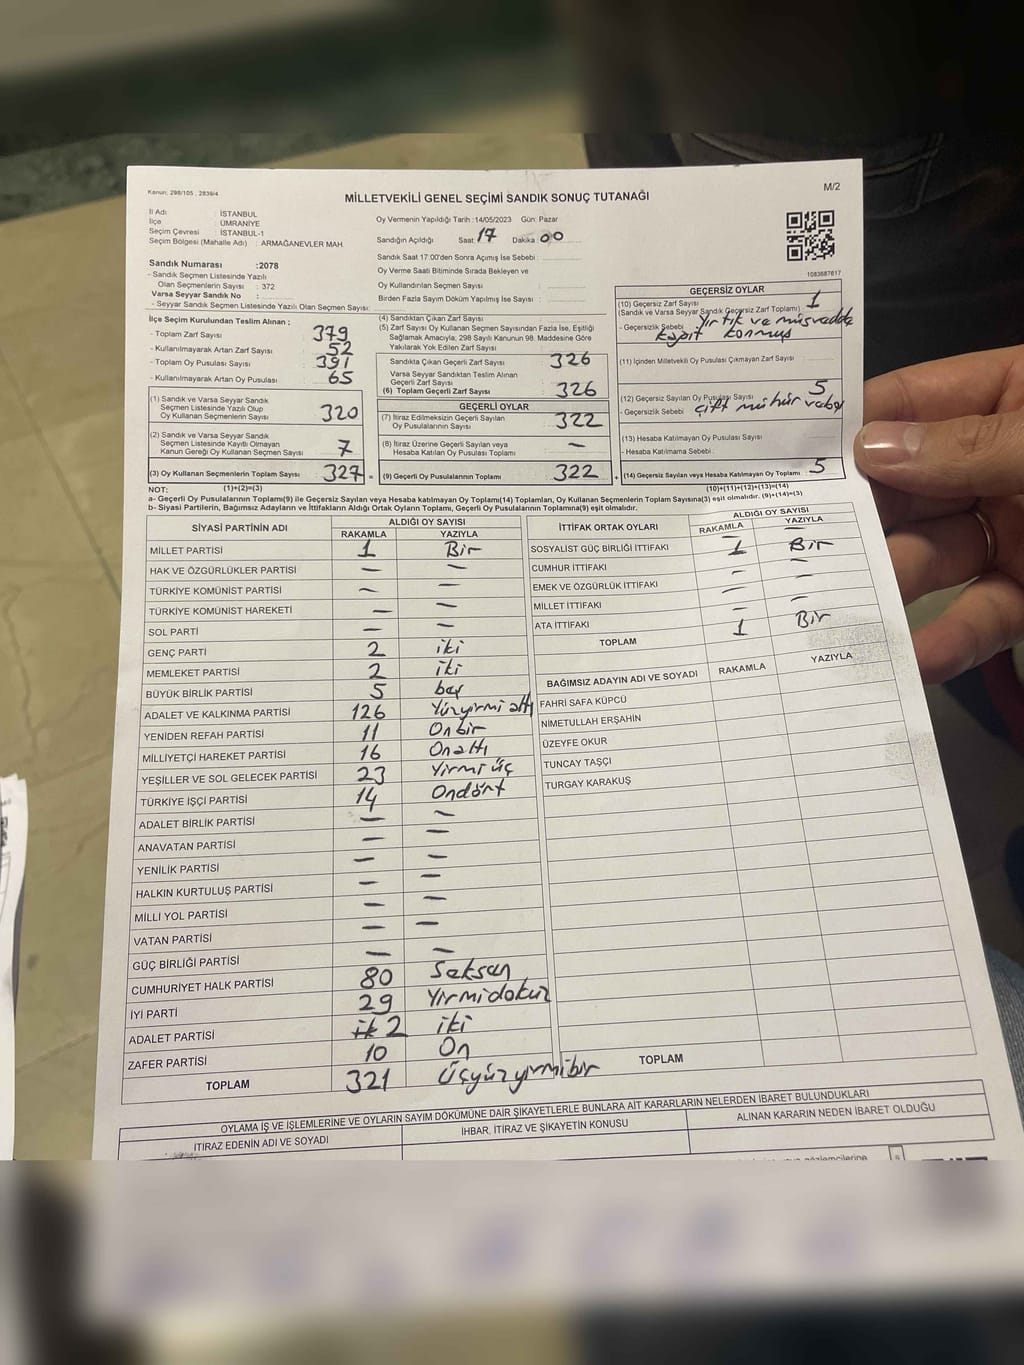 Kanun: 298/105 , 2839/4
M/2
MİLLETVEKİLİ GENEL SEÇİMİ SANDIK SONUÇ TUTANAĞI
İl Adı : İSTANBUL
İlçe : ÜMRANİYE
Seçim Çevresi : İSTANBUL-1
Seçim Bölgesi (Mahalle Adı) : ARMAĞANEVLER MAH.
Oy Vermenin Yapıldığı Tarih :14/05/2023 Gün: Pazar
Sandığın Açıldığı Saat: 17 Dakika: 00
Sandık Numarası :2078
- Sandık Seçmen Listesinde Yazılı
Olan Seçmenlerin Sayısı : 372
Varsa Seyyar Sandık No :
- Seyyar Sandık Seçmen Listesinde Yazılı Olan Seçmen Sayısı:
Sandık Saat 17:00'den Sonra Açımış İse Sebebi :
Oy Verme Saati Bitiminde Sırada Bekleyen ve
Oy Kullandırılan Seçmen Sayısı :
Birden Fazla Sayım Döküm Yapılmış İse Sayısı :
1083687617
İlçe Seçim Kurulundan Teslim Alınan :
- Toplam Zarf Sayısı 379
- Kullanılmayarak Artan Zarf Sayısı 52
- Toplam Oy Pusulası Sayısı 391
- Kullanılmayarak Artan Oy Pusulası 65
(1) Sandık ve Varsa Seyyar Sandık
Seçmen Listesinde Yazılı Olup
Oy Kullanan Seçmenlerin Sayısı 320
(2) Sandık ve Varsa Seyyar Sandık
Seçmen Listesinde Kayıtlı Olmayan
Kanun Gereği Oy Kullanan Seçmen Sayısı 7
(3) Oy Kullanan Seçmenlerin Toplam Sayısı 327 =
(1)+(2)=(3)
(4) Sandıktan Çıkan Zarf Sayısı
(5) Zarf Sayısı Oy Kullanan Seçmen Sayısından Fazla İse, Eşitliği
Sağlamak Amacıyla; 298 Sayılı Kanunun 98. Maddesine Göre
Yakılarak Yok Edilen Zarf Sayısı
Sandıkta Çıkan Geçerli Zarf Sayısı 326
Varsa Seyyar Sandıktan Teslim Alınan
Geçerli Zarf Sayısı
(6) Toplam Geçerli Zarf Sayısı 326
GEÇERLİ OYLAR
(7) İtiraz Edilmeksizin Geçerli Sayılan
Oy Pusulalarının Toplamı 322
(8) İtiraz Üzerine Geçerli Sayılan veya
Hesaba Katılan Oy Pusulası Toplamı —
(9) Geçerli Oy Pusulalarının Toplamı 322
GEÇERSİZ OYLAR
(10) Geçersiz Zarf Sayısı
(Sandık ve Varsa Seyyar Sandık Geçersiz Zarf Toplamı) 1
- Geçersizlik Sebebi Yırtık ve müsvedde
kağıt konmuş
(11) İçinden Milletvekili Oy Pusulası Çıkmayan Zarf Sayısı
(12) Geçersiz Sayılan Oy Pusulası Sayısı 5
- Geçersizlik Sebebi çift mühür
(13) Hesaba Katılmayan Oy Pusulası Sayısı
- Hesaba Katılmama Sebebi
+ (14) Geçersiz Sayılan veya Hesaba Katılmayan Oy Toplamı 5
(10)+(11)+(12)+(13)=(14)
NOT:
a- Geçerli Oy Pusulalarının Toplamı(9) ile Geçersiz Sayılan veya Hesaba katılmayan Oy Toplamı(14) Toplamları, Oy Kullanan Seçmenlerin Toplam Sayısına(3) eşit olmalıdır. (9)+(14)=(3)
b- Siyasi Partilerin, Bağımsız Adayların ve İttifakların Aldığı Ortak Oyların Toplamı, Geçerli Oy Pusulalarının Toplamına(9) eşit olmalıdır.
SİYASİ PARTİNİN ADI
ALDIĞI OY SAYISI
RAKAMLA YAZIYLA
MİLLET PARTİSİ 1 Bir
HAK VE ÖZGÜRLÜKLER PARTİSİ — —
TÜRKİYE KOMÜNİST PARTİSİ — —
TÜRKİYE KOMÜNİST HAREKETİ — —
SOL PARTİ — —
GENÇ PARTİ 2 iki
MEMLEKET PARTİSİ 2 iki
BÜYÜK BİRLİK PARTİSİ 5 beş
ADALET VE KALKINMA PARTİSİ 126 Yüzyirmi altı
YENİDEN REFAH PARTİSİ 11 Onbir
MİLLİYETÇİ HAREKET PARTİSİ 16 Onaltı
YEŞİLLER VE SOL GELECEK PARTİSİ 23 Yirmi üç
TÜRKİYE İŞÇİ PARTİSİ 14 Ondört
ADALET BİRLİK PARTİSİ — —
ANAVATAN PARTİSİ — —
YENİLİK PARTİSİ — —
HALKIN KURTULUŞ PARTİSİ — —
MİLLİ YOL PARTİSİ — —
VATAN PARTİSİ — —
GÜÇ BİRLİĞİ PARTİSİ — —
CUMHURİYET HALK PARTİSİ 80 Seksen
İYİ PARTİ 29 Yirmidokuz
ADALET PARTİSİ 2 iki
ZAFER PARTİSİ 10 On
TOPLAM 321 Üçyüzyirmibir
İTTİFAK ORTAK OYLARI
ALDIĞI OY SAYISI
RAKAMLA YAZIYLA
SOSYALİST GÜÇ BİRLİĞİ İTTİFAKI
CUMHUR İTTİFAKI
EMEK VE ÖZGÜRLÜK İTTİFAKI
MİLLET İTTİFAKI
ATA İTTİFAKI
TOPLAM
1 Bir
1 Bir
BAĞIMSIZ ADAYIN ADI VE SOYADI RAKAMLA YAZIYLA
FAHRİ SAFA KÜPCÜ
NİMETULLAH ERŞAHİN
ÜZEYFE OKUR
TUNCAY TAŞÇI
TURGAY KARAKUŞ
TOPLAM
OYLAMA İŞ VE İŞLEMLERİNE VE OYLARIN SAYIM DÖKÜMÜNE DAİR ŞİKAYETLERLE BUNLARA AİT KARARLARIN NELERDEN İBARET BULUNDUKLARI
İTİRAZ EDENİN ADI VE SOYADI
İHBAR, İTİRAZ VE ŞİKAYETİN KONUSU
ALINAN KARARIN NEDEN İBARET OLDUĞU